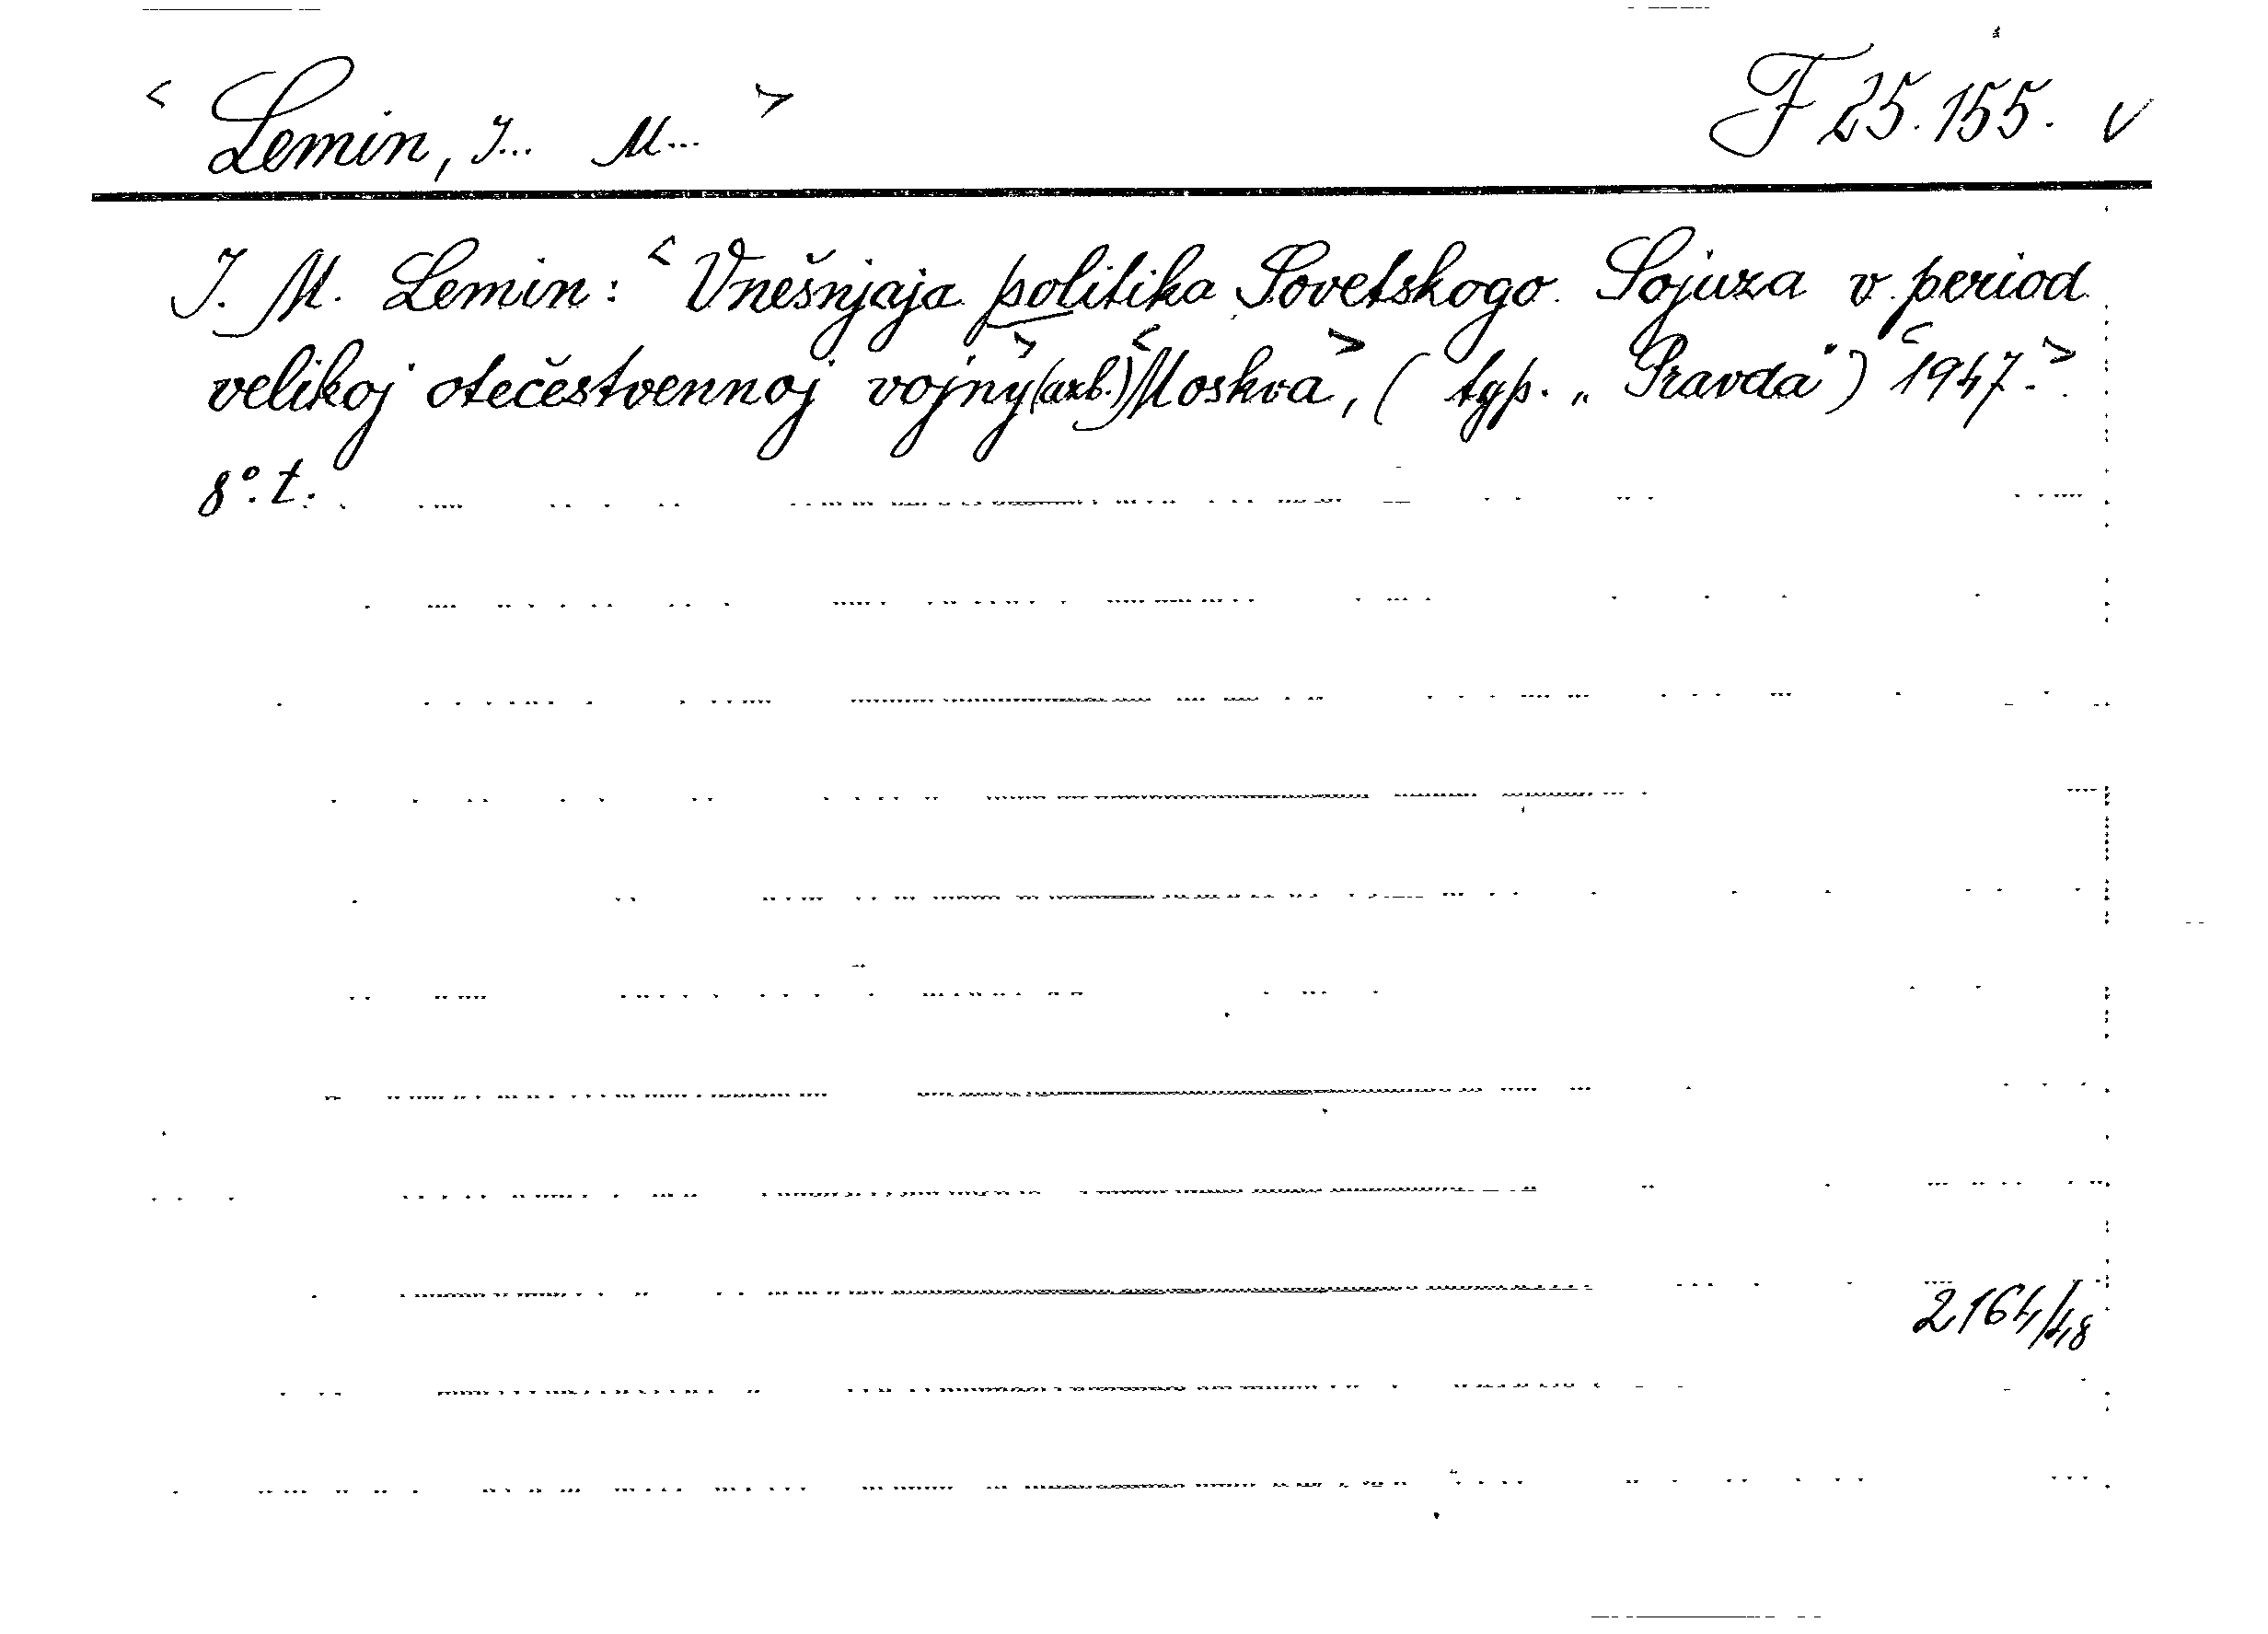 < Lemin, I... M... > F 25.155. v
I. M. Lemin: <Vnešnjaja politika Sovetskogo Sojuza v period
velikoj otečestvennoj vojny> (azb.) <Moskva>, ( typ. „Pravda") <1947.>
8°. t.
2164/48